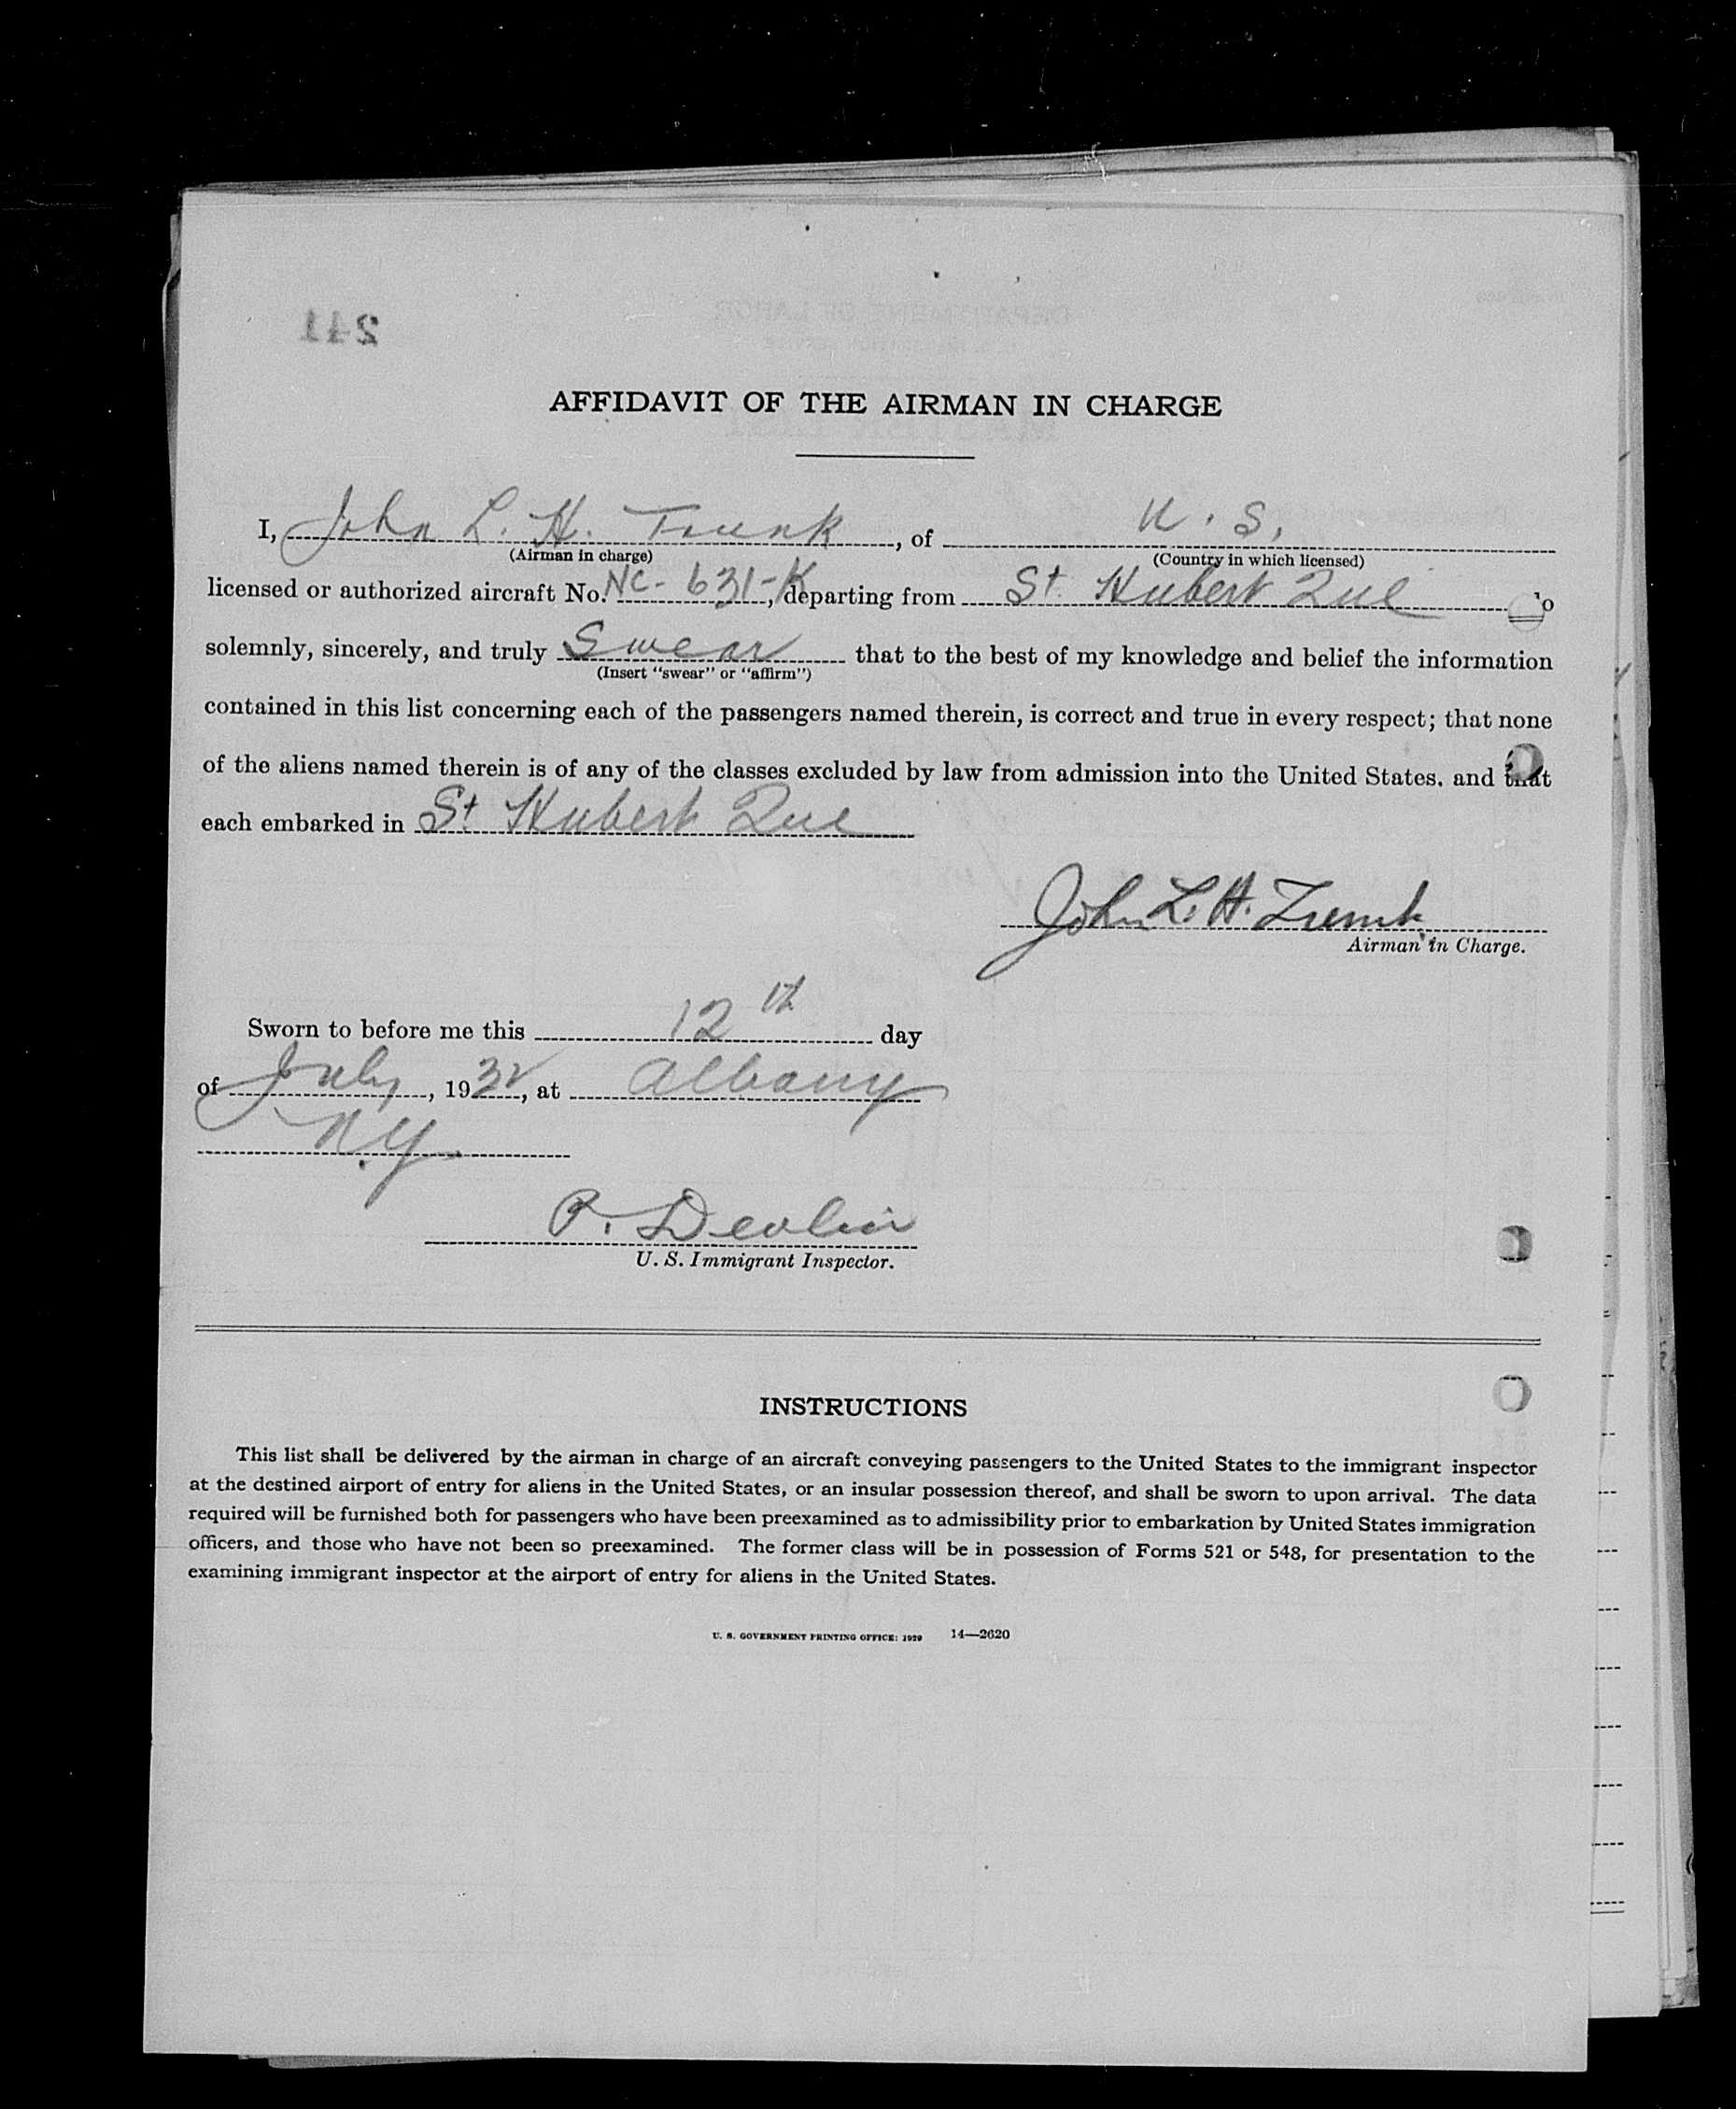 241
AFFIDAVIT OF THE AIRMAN IN CHARGE
I, John L. H. Trunk, of U. S.
(Airman in charge) (Country in which licensed)
licensed or authorized aircraft No. NC-631-K, departing from St. Hubert Que do
solemnly, sincerely, and truly Swear that to the best of my knowledge and belief the information
(Insert "swear" or "affirm")
contained in this list concerning each of the passengers named therein, is correct and true in every respect; that none
of the aliens named therein is of any of the classes excluded by law from admission into the United States, and that
each embarked in St Hubert Que
John L. H. Trunk
Airman in Charge.
Sworn to before me this 12th day
of July, 1932, at Albany
N.Y.
P. Devlin
U. S. Immigrant Inspector.
INSTRUCTIONS
This list shall be delivered by the airman in charge of an aircraft conveying passengers to the United States to the immigrant inspector
at the destined airport of entry for aliens in the United States, or an insular possession thereof, and shall be sworn to upon arrival. The data
required will be furnished both for passengers who have been preexamined as to admissibility prior to embarkation by United States immigration
officers, and those who have not been so preexamined. The former class will be in possession of Forms 521 or 548, for presentation to the
examining immigrant inspector at the airport of entry for aliens in the United States.
U. S. GOVERNMENT PRINTING OFFICE: 1929 14—2620